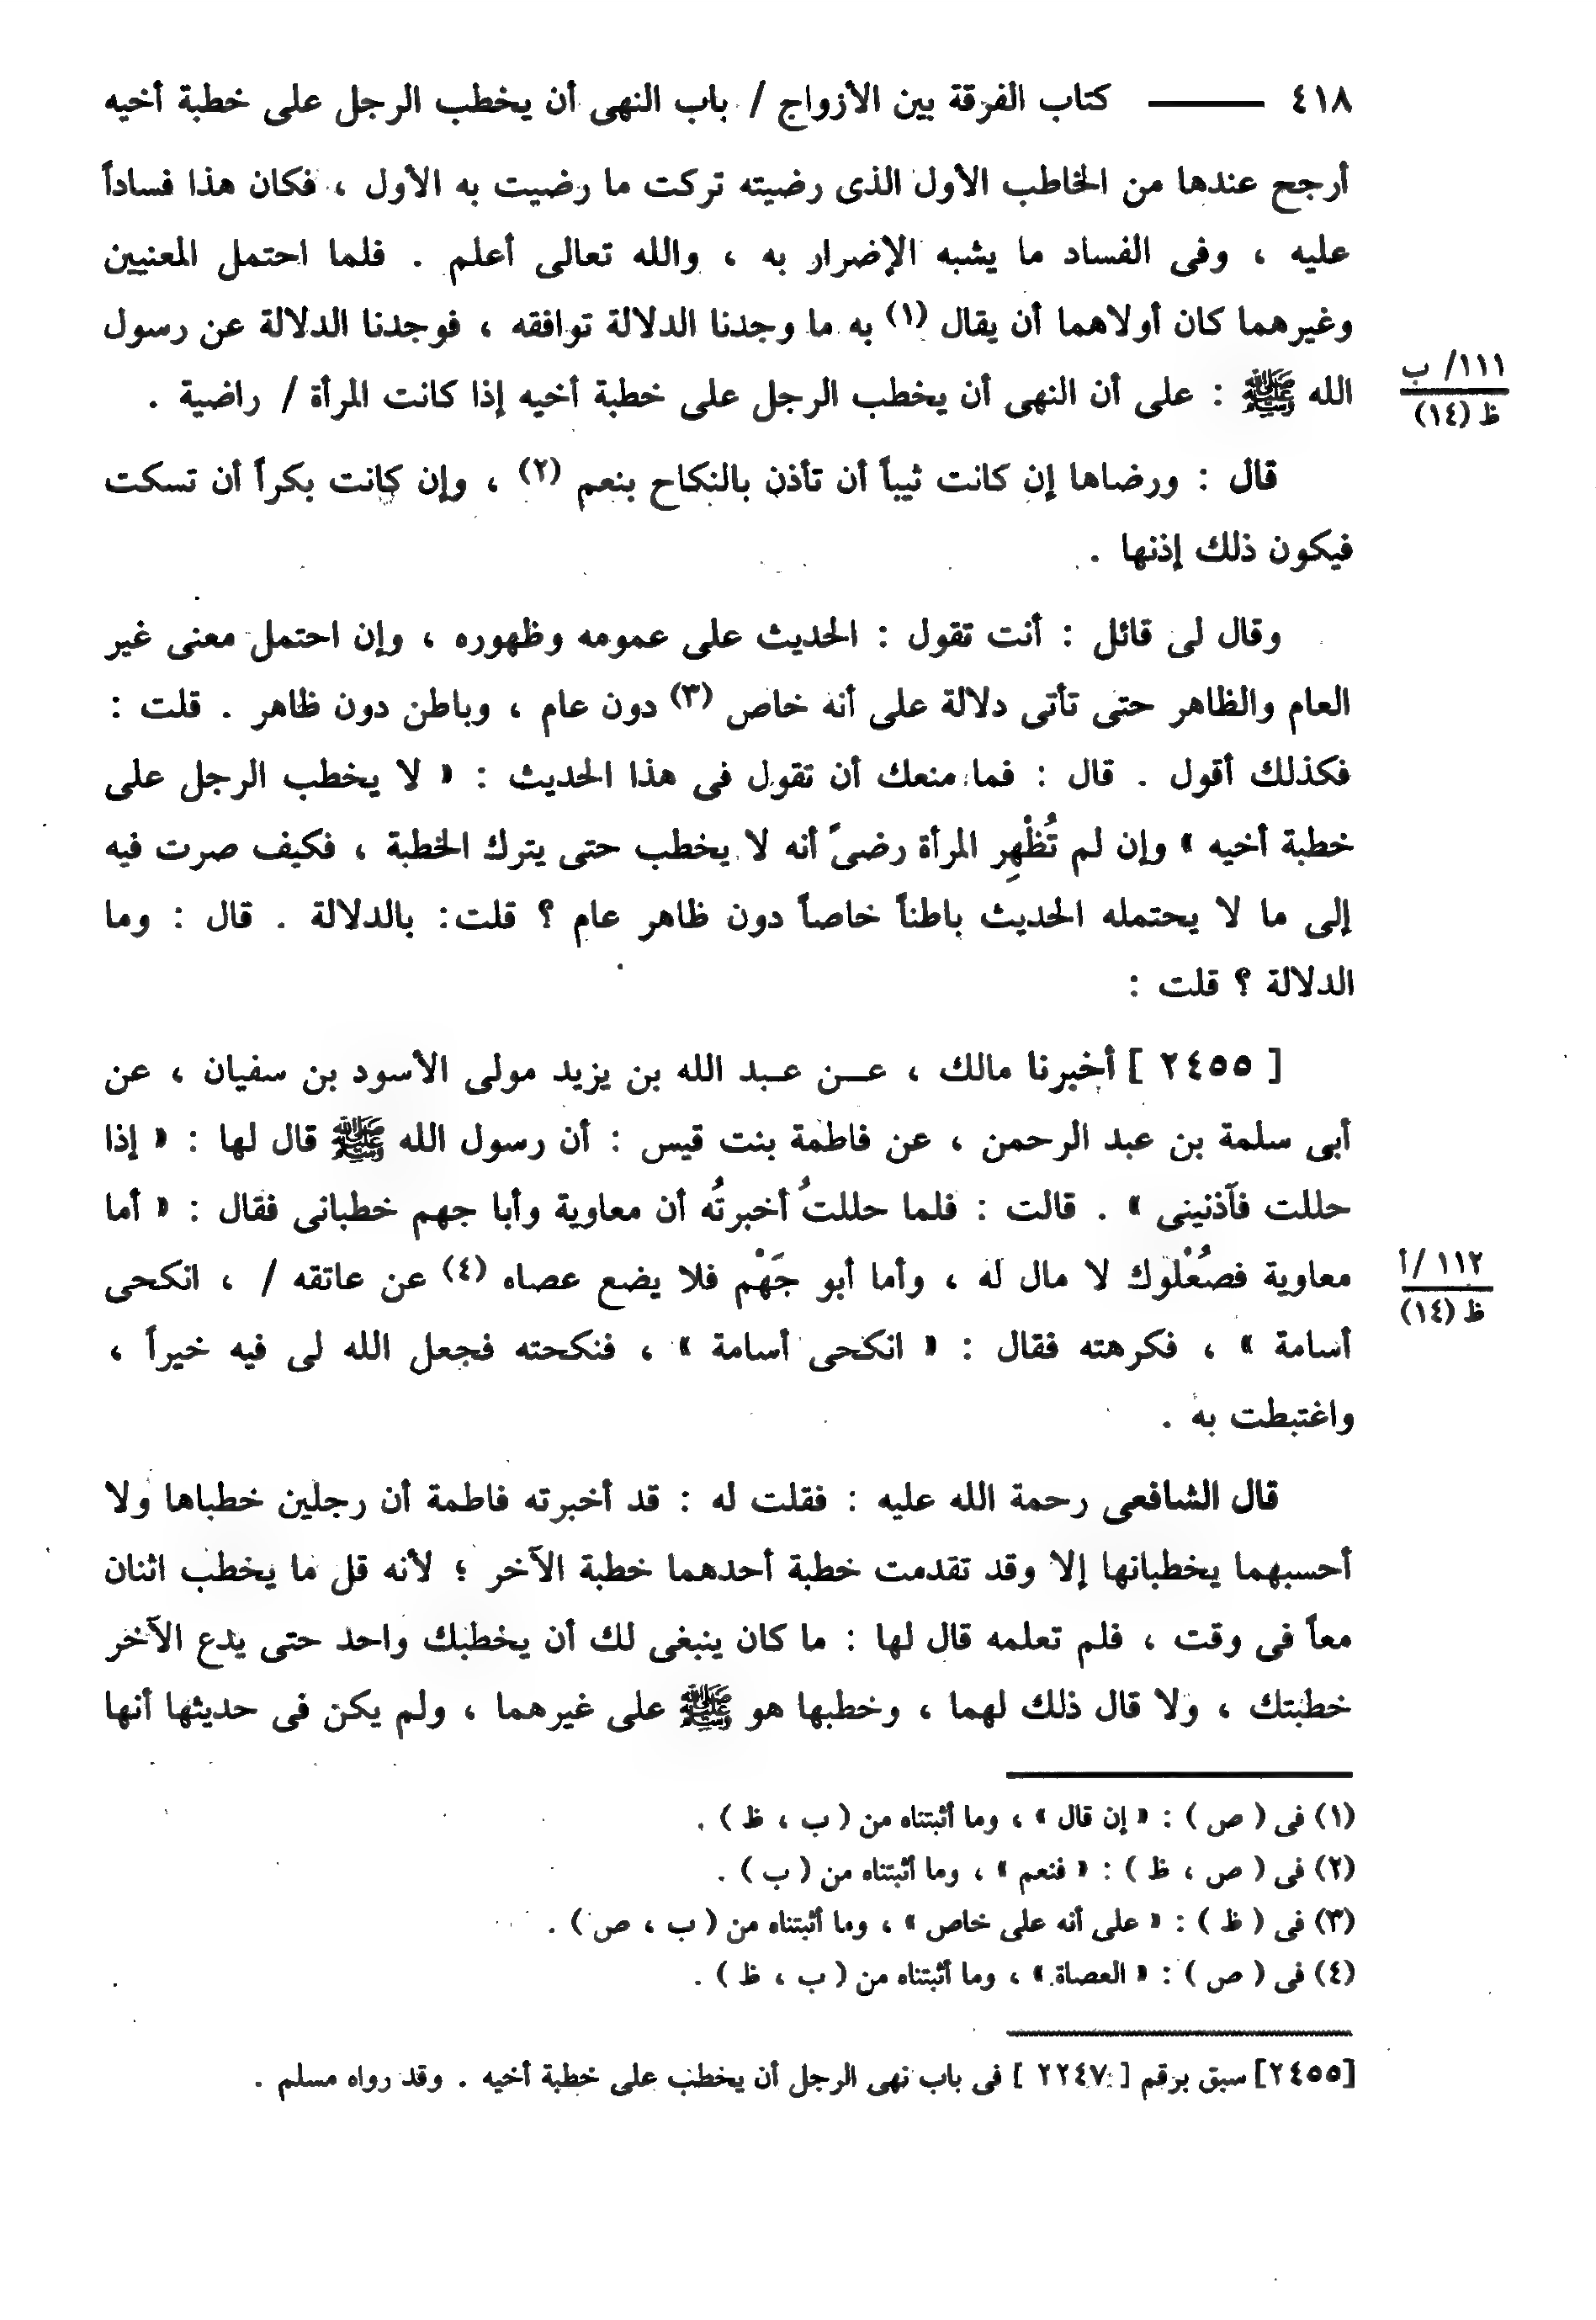 ٤١٨ ـــــ كتاب الفرقة بين الأزواج / باب النهى أن يخطب الرجل على خطبة أخيه
أرجح عندها من الخاطب الأول الذى رضيته تركت ما رضيت به الأول ، فكان هذا فساداً
عليه ، وفى الفساد ما يشبه الإضرار به ، والله تعالى أعلم . فلما احتمل المعنيين
وغيرهما كان أولاهما أن يقال (١) به ما وجدنا الدلالة توافقه ، فوجدنا الدلالة عن رسول
١١١/ ب
ظ (١٤)
الله ﷺ : على أن النهى أن يخطب الرجل على خطبة أخيه إذا كانت المرأة / راضية .
قال : ورضاها إن كانت ثيباً أن تأذن بالنكاح بنعم (٢) ، وإن كانت بكراً أن تسكت
فيكون ذلك إذنها .
وقال لى قائل : أنت تقول : الحديث على عمومه وظهوره ، وإن احتمل معنى غير
العام والظاهر حتى تأتى دلالة على أنه خاص (٣) دون عام ، وباطن دون ظاهر . قلت :
فكذلك أقول . قال : فما منعك أن تقول فى هذا الحديث : « لا يخطب الرجل على
خطبة أخيه » وإن لم تُظْهِر المرأة رضىً أنه لا يخطب حتى يترك الخطبة ، فكيف صرت فيه
إلى ما لا يحتمله الحديث باطناً خاصاً دون ظاهر عام ؟ قلت: بالدلالة . قال : وما
الدلالة ؟ قلت :
[ ٢٤٥٥ ] أخبرنا مالك ، عـــن عـبد الله بن يزيد مولى الأسود بن سفيان ، عن
أبى سلمة بن عبد الرحمن ، عن فاطمة بنت قيس : أن رسول الله ﷺ قال لها : « إذا
حللت فآذنينى » . قالت : فلما حللتُ أخبرتُه أن معاوية وأبا جهم خطبانى فقال : « أما
معاوية فصُعْلوك لا مال له ، وأما أبو جَهْم فلا يضع عصاه (٤) عن عاتقه / ، انكحى
١١٢ /أ
ظ (١٤)
أسامة » ، فكرهته فقال : « انكحى أسامة » ، فنكحته فجعل الله لى فيه خيراً ،
واغتبطت به .
قال الشافعى رحمة الله عليه : فقلت له : قد أخبرته فاطمة أن رجلين خطباها ولا
أحسبهما يخطبانها إلا وقد تقدمت خطبة أحدهما خطبة الآخر ؛ لأنه قل ما يخطب اثنان
معاً فى وقت ، فلم تعلمه قال لها : ما كان ينبغى لك أن يخطبك واحد حتى يدع الآخر
خطبتك ، ولا قال ذلك لهما ، وخطبها هو ﷺ على غيرهما ، ولم يكن فى حديثها أنها
(١) فى ( ص ) : « إن قال » ، وما أثبتناه من ( ب ، ظ ) .
(٢) فى ( ص ، ظ ) : « فنعم » ، وما أثبتناه من ( ب ) .
(٣) فى ( ظ ) : « على أنه على خاص » ، وما أثبتناه من ( ب ، ص ) .
(٤) فى ( ص ) : « العصاة » ، وما أثبتناه من ( ب ، ظ ) .
[٢٤٥٥] سبق برقم [ ٢٢٤٧ ] فى باب نهى الرجل أن يخطب على خطبة أخيه . وقد رواه مسلم .